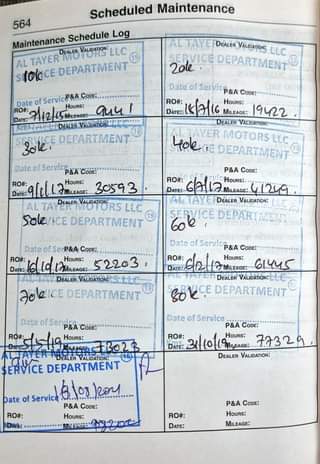 564 Scheduled Maintenance
Maintenance Schedule Log
DEALER VALIDATION:
AL TAYER MOTORS LLC
10k
SERVICE DEPARTMENT
P&A CODE:
Date of Service
RO#: HOURS:
DATE: 7/12/15 MILEAGE: 9441
DEALER VALIDATION:
AL TAYER MOTORS LLC
20k
SERVICE DEPARTMENT
P&A CODE:
Date of Service
RO#: HOURS:
DATE: 18/7/16 MILEAGE: 19422
DEALER VALIDATION:
30k
SERVICE DEPARTMENT
Date of Service
P&A CODE:
RO#: HOURS:
DATE: MILEAGE: 30593
DEALER VALIDATION:
40k
SERVICE DEPARTMENT
P&A CODE:
RO#: HOURS:
DATE: 6/7/17 MILEAGE: 41249
DEALER VALIDATION:
AL TAYER MOTORS LLC
50k
SERVICE DEPARTMENT
Date of Service
P&A CODE:
RO#: HOURS:
DATE: MILEAGE: 52203
DEALER VALIDATION:
AL TAYER MOTORS LLC
SERVICE DEPARTMENT
60k
Date of Service
P&A CODE:
RO#: HOURS:
DATE: MILEAGE: 61445
DEALER VALIDATION:
70k
SERVICE DEPARTMENT
Date of Service
P&A CODE:
RO#: HOURS:
73023
DEALER VALIDATION:
80k
SERVICE DEPARTMENT
Date of Service
P&A CODE:
RO#: HOURS:
DATE: 31/10/19 MILEAGE: 77329
AL TAYER MOTORS
DEALER VALIDATION:
SERVICE DEPARTMENT
Date of Service
P&A CODE:
RO#: HOURS:
DATE: MILEAGE:
DEALER VALIDATION:
P&A CODE:
RO#: HOURS:
DATE: MILEAGE: